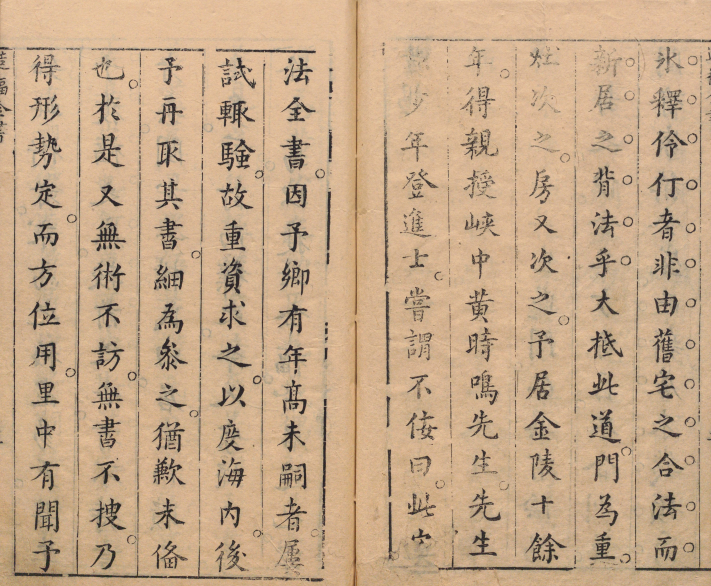 氷釋伶仃者非由舊宅之合法而
新居之背法乎大抵此道門為重
灶次之房又次之予居金陵十餘
年得親授峽中黄時鳴先生先生
妙年登進士嘗謂不佞曰此
法全書因予鄉有年髙未嗣者屢
試輒驗故重資求之以庋海内後
予再取其書細為叅之猶歉未俻
也於是又無術不訪無書不搜乃
得形勢定而方位用里中有聞予
全書